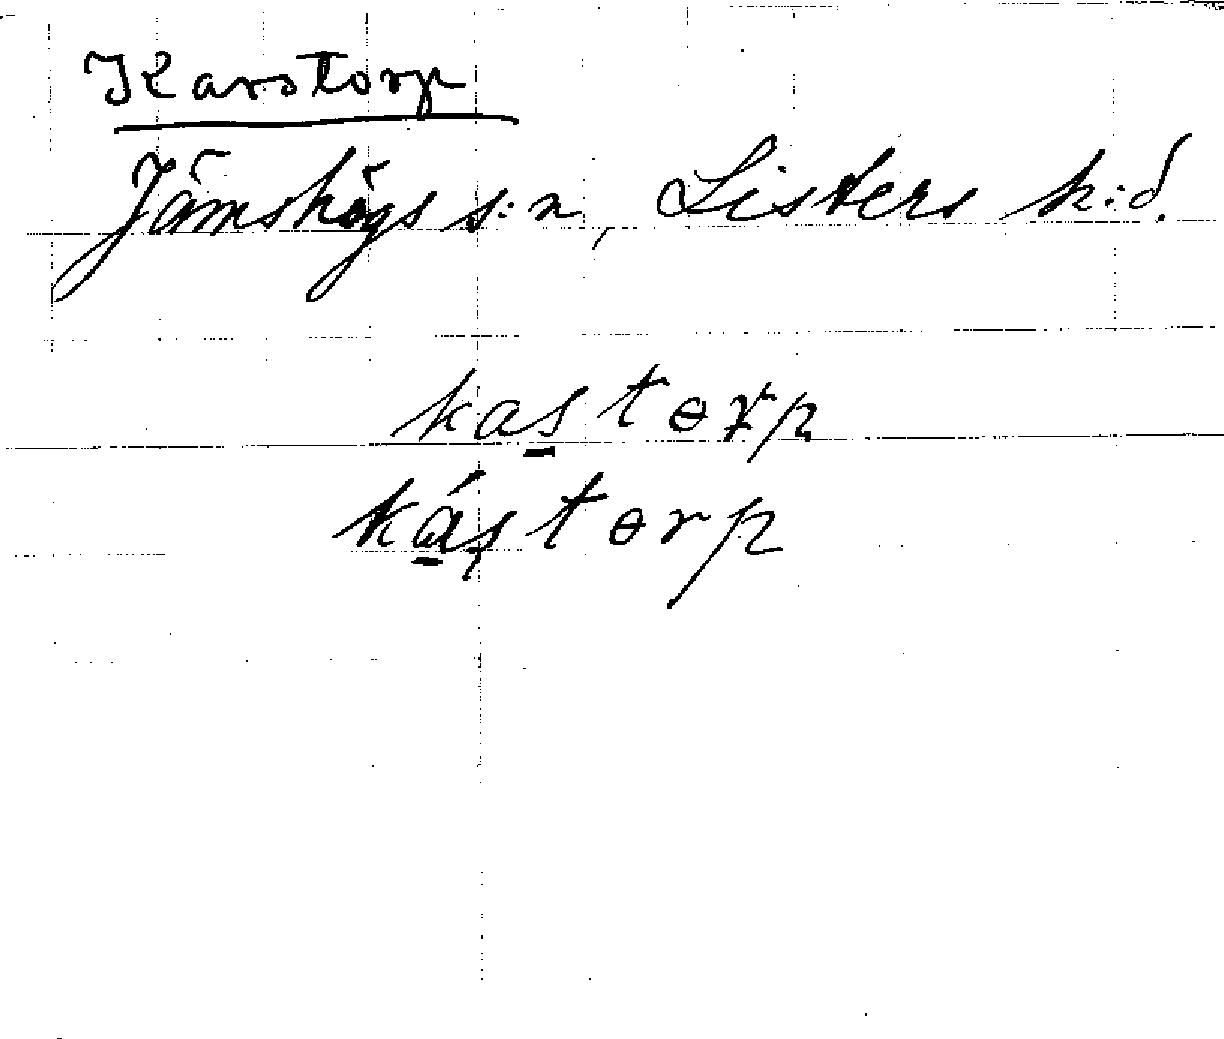 Karstorp
Jämshögs s:n, Listers h:d.
kas̲tɵrp
ká̲ştɵrp